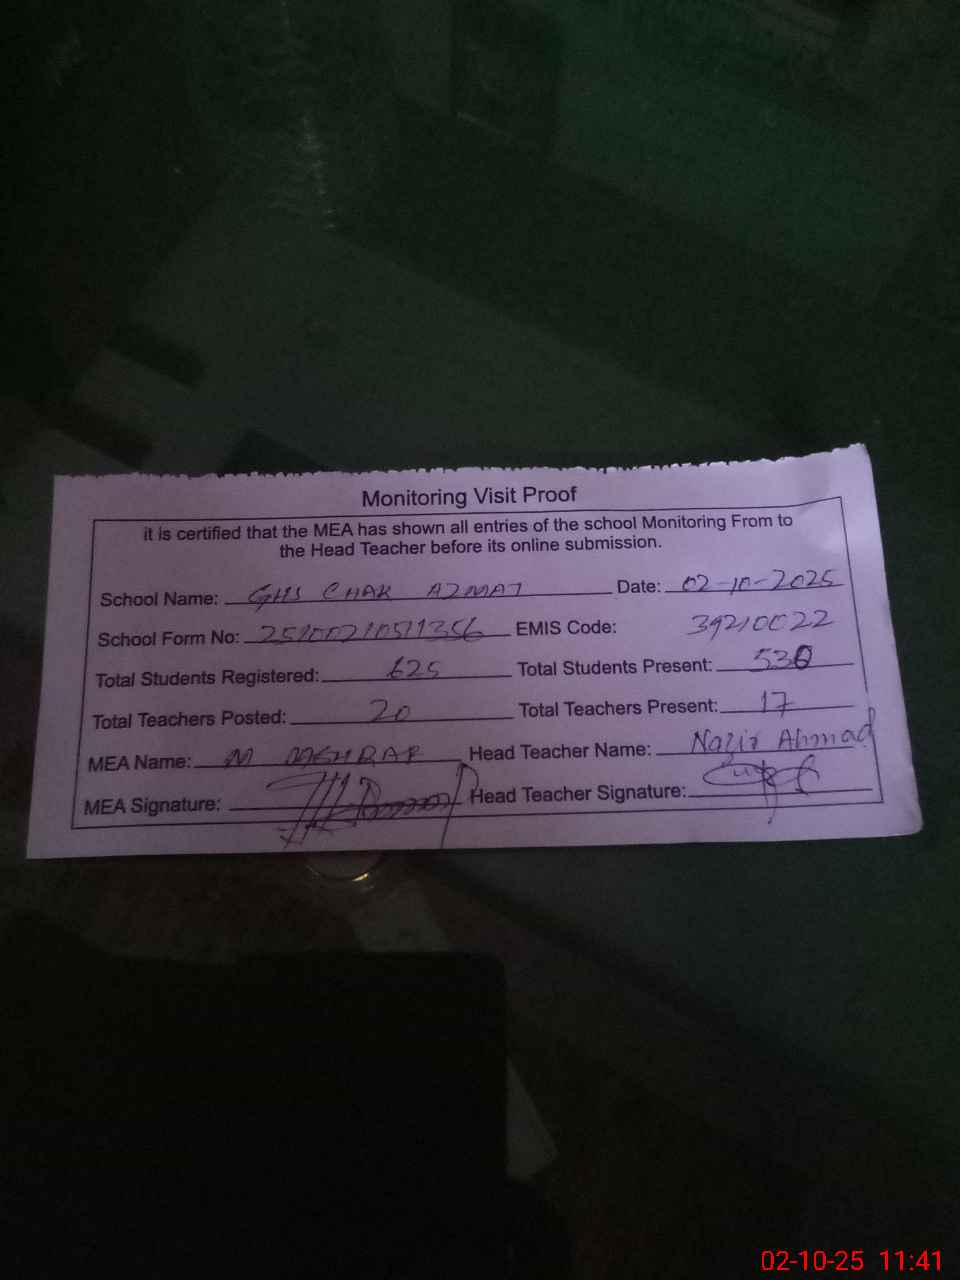 Monitoring Visit Proof
it is certified that the MEA has shown all entries of the school Monitoring From to
the Head Teacher before its online submission.
School Name: GHS CHAK AZMAT Date: 02-10-2025
School Form No: EMIS Code: 39210022
Total Students Registered: 625 Total Students Present: 530
Total Teachers Posted: 20 Total Teachers Present: 17
MEA Name: M Head Teacher Name: Nazir Ahmad
MEA Signature: Head Teacher Signature:
02-10-25 11:41